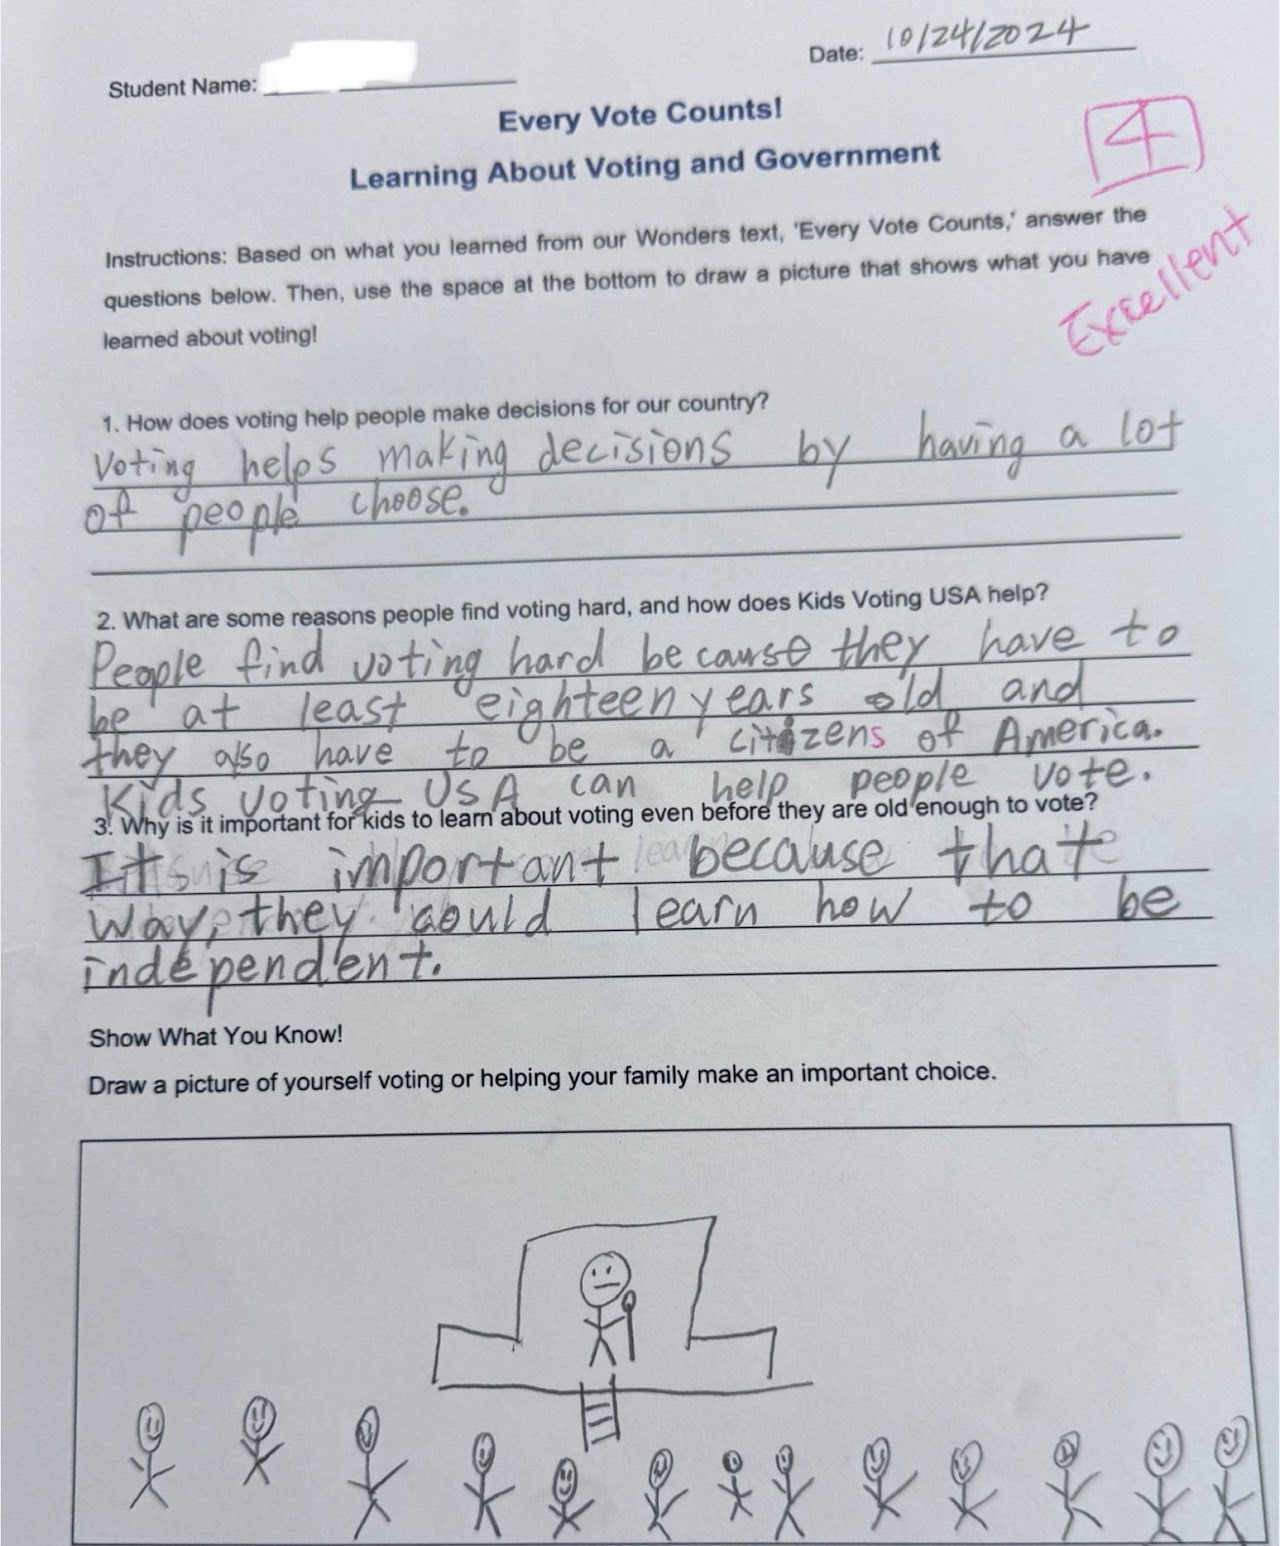 Student Name:
Date: 10/24/2024
Every Vote Counts!
Learning About Voting and Government
4
Excellent
Instructions: Based on what you learned from our Wonders text, 'Every Vote Counts,' answer the
questions below. Then, use the space at the bottom to draw a picture that shows what you have
learned about voting!
1. How does voting help people make decisions for our country?
Voting helps making decisions by having a lot
of people choose.
2. What are some reasons people find voting hard, and how does Kids Voting USA help?
People find voting hard because they have to
be at least eighteen years old and
they also have to be a citizens of America.
Kids voting USA can help people vote.
3. Why is it important for kids to learn about voting even before they are old enough to vote?
It is important because that
way, they could learn how to be
independent.
Show What You Know!
Draw a picture of yourself voting or helping your family make an important choice.